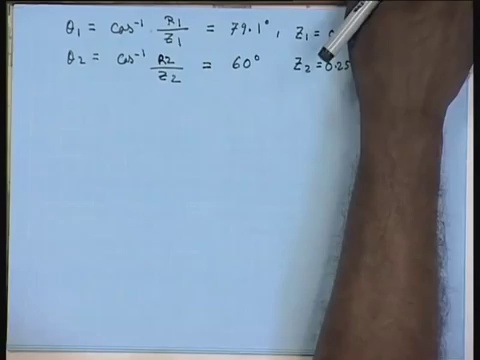 θ1 = cos⁻¹ R1/Z1 = 79.1°, Z1 =
θ2 = cos⁻¹ R2/Z2 = 60° Z2 = 0.25